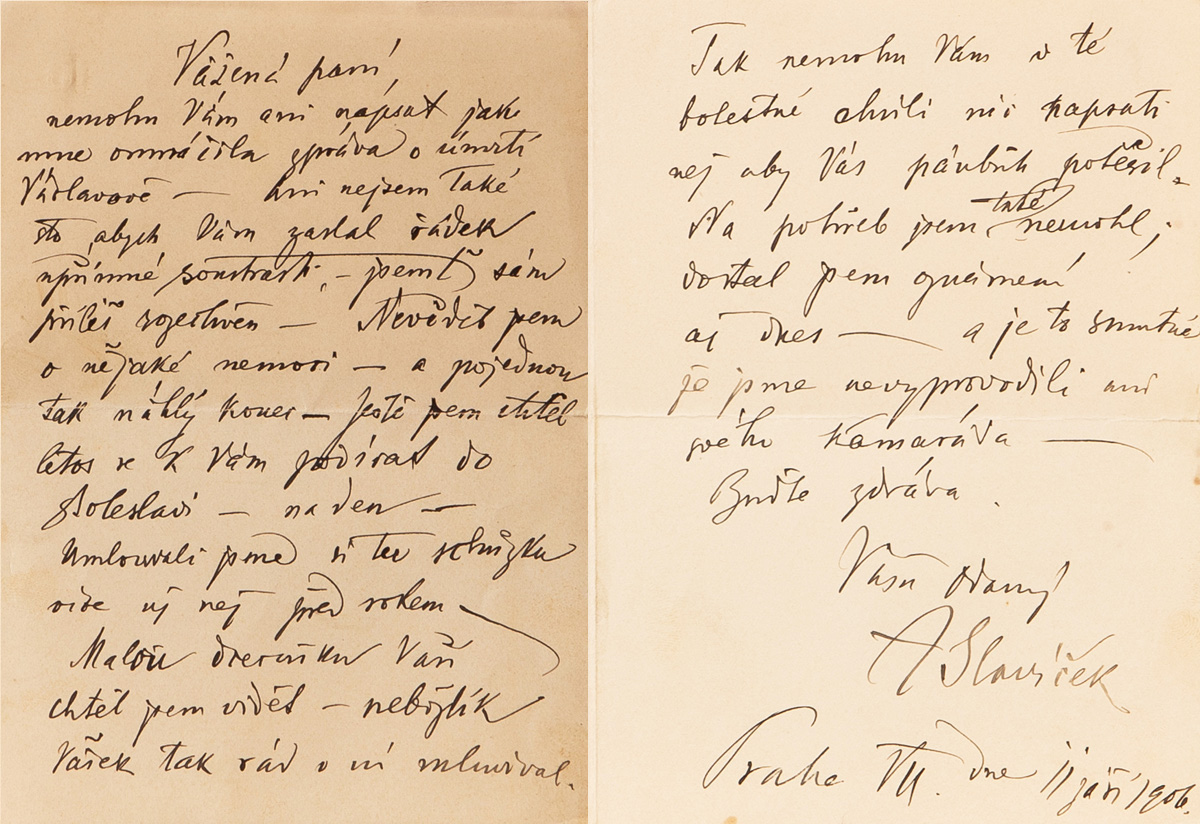 Vážená paní,
nemohu Vám ani napsat jak
mne omráčila zpráva o úmrtí
Václavově — ani nejsem také
sto, abych Vám zaslal řádek
upřímné soustrasti, – jsemť sám
příliš rozechvěn — Nevěděl jsem
o nějaké nemoci — a pojednou
tak náhlý konec — Ještě jsem chtěl
létos se k Vám podívat do
Boleslavi — na den —
Umlouvali jsme si tu schůzku
více už než před rokem —
Malou dcerušku Vaši
chtěl jsem viděti – nebožtík
Vašek tak rád o ní mluvíval.
Tak nemohu Vám v té
bolestné chvíli nic napsati
než aby Vás pánbůh potěšil.
Na pohřeb jsem také nemohl,
dostal jsem oznámení
až dnes — a je to smutné
že jsme nevyprovodili ani
svého kamaráda —
Buďte zdráva.
Vášn oddaný
ASlavíček
Praha VII. dne 11 září 1906.